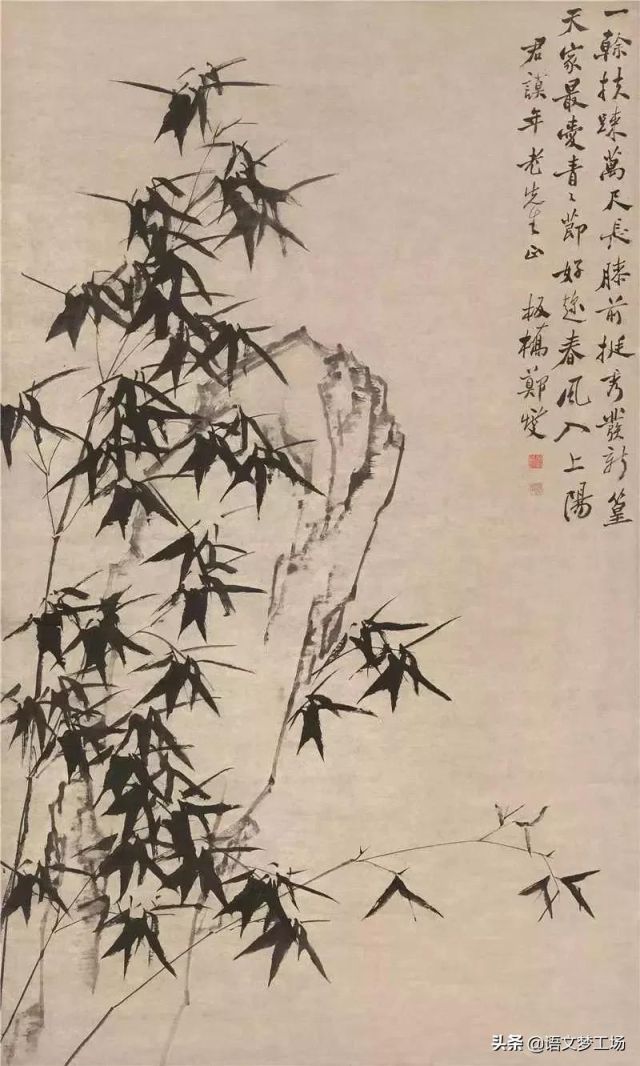 一榦扶疎萬尺長膝前挺秀發新篁
天家最愛青〻節好趂春風入上陽
君謨年老先生正 板橋鄭燮
头条 @语文梦工场